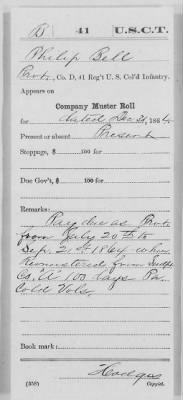 B 41 U.S.C.T.
Philip Bell
Pvt, Co. D, 41 Reg't U. S. Col'd Infantry.
Appears on
Company Muster Roll
for dated Dec 31, 1864
Present or absent Present
Stoppage, $ 100 for
Due Gov't, $ 100 for
Remarks:
Pay due as Pvt
from July 20th to
Sep. 21st 1864 when
remustered from
Co. A 100 days Pa.
Cold Vols.
Book mark:
Hodges
(358) Copyist.